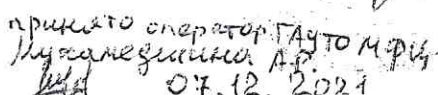 принято оператор ГАУТО МФЦ
Мухамедшина А.Р.
07.12.2021